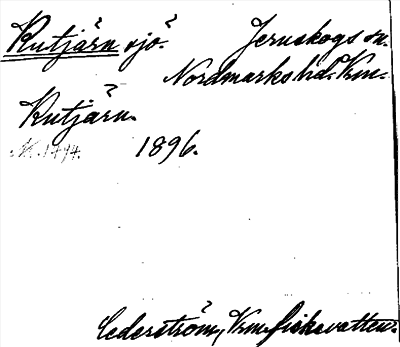 Rutjärn sjö. Jernskogs sn.
Nordmarks hd. Vrm.
Rutjärn.
1896.
Cederström, Vrm. fiskevatten.